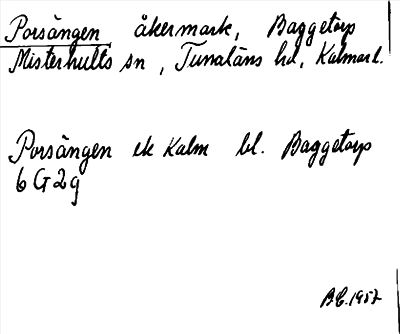 Porsängen åkermark, Baggetorp
Misterhults sn, Tunaläns hd, Kalmar l.
Porsängen ek Kalm bl. Baggetorp
6 G 2 g
1957